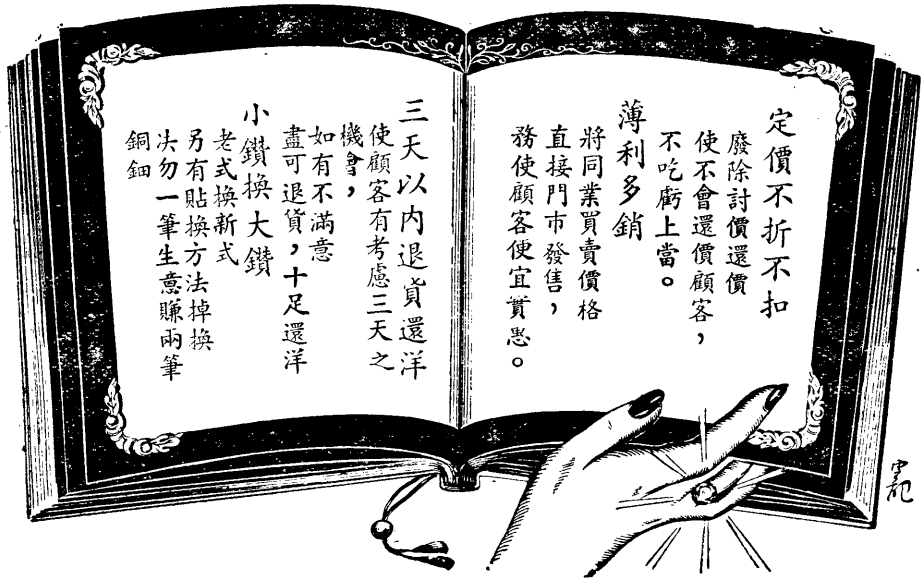 定價不折不扣
廢除討價還價
使不會還價顧客，
不吃虧上當。
薄利多銷
將同業買賣價格
直接門市發售，
務使顧客便宜實惠。
三天以内退貨還洋
使顧客有考慮三天之
機會，
如有不滿意
盡可退貨，十足還洋
小鑽換大鑽
老式換新式
另有貼換方法掉換
决勿一筆生意賺兩筆
銅鈿